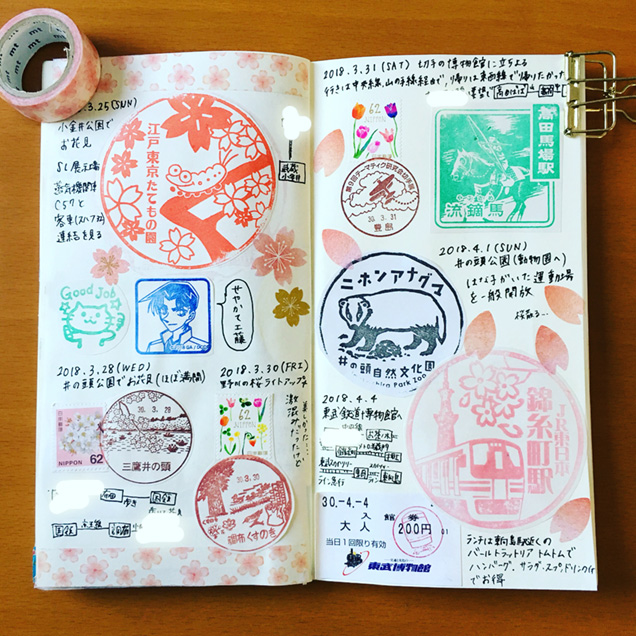 mt
mt
3.25(SUN)
小金井公園で
お花見
SL展示場
蒸気機関車
C57と
客車(スハフ32)
連結を見る
江戸東京たてもの園
武蔵
小金井
Good Job
せやかて工藤
2018.3.28(WED)
井の頭公園でお花見(ほぼ満開)
日本郵便
62
NIPPON
30.3.28
三鷹井の頭
2018.3.30(FRI)
野川の桜ライトアップ
62
NIPPON
日本郵便
30.3.30
調布くすのき
2018.3.31(SAT) 切手の博物館に立ちよる
行きは中央線、山の手線経由で、帰りは東西線で帰りたかった
高田馬場
62
第9回テーマティク研究会切手展
30.3.31
豊島
高田馬場駅
流鏑馬
2018.4.1(SUN)
井の頭公園(動物園へ)
はな子がいた運動場
を一般開放
桜散る…
ニホンアナグマ
井の頭自然文化園
Park Zoo
2018.4.4
東武鉄道博物館へ
30.-4.-4
入館券
大人 200円
当日1回限り有効
東武博物館
JR東日本
錦糸町駅
ランチは東向島駅近くの
バールトラットリア トムトムで
ハンバーグ、サラダ・スープ・ドリンク付
でお得